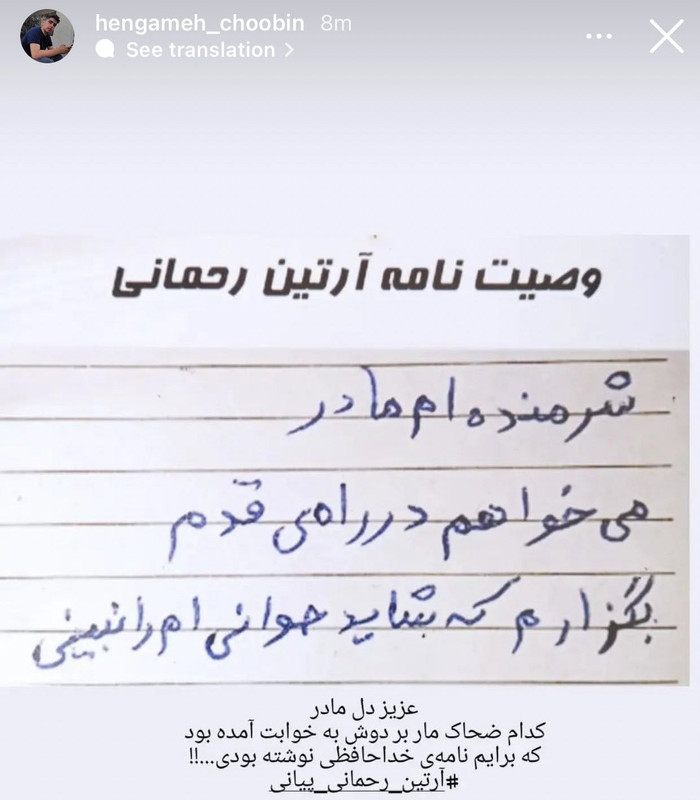 hengameh_choobin 8m
See translation
وصیت نامه آرتین رحمانی
شرمنده ام مادر
می خواهم در راهی قدم
بگزارم که شاید جوانی ام را نبینی
عزیز دل مادر
کدام ضحاک مار بر دوش به خوابت آمده بود
که برایم نامه‌ی خداحافظی نوشته بودی...!!
#آرتین_رحمانی_پیانی